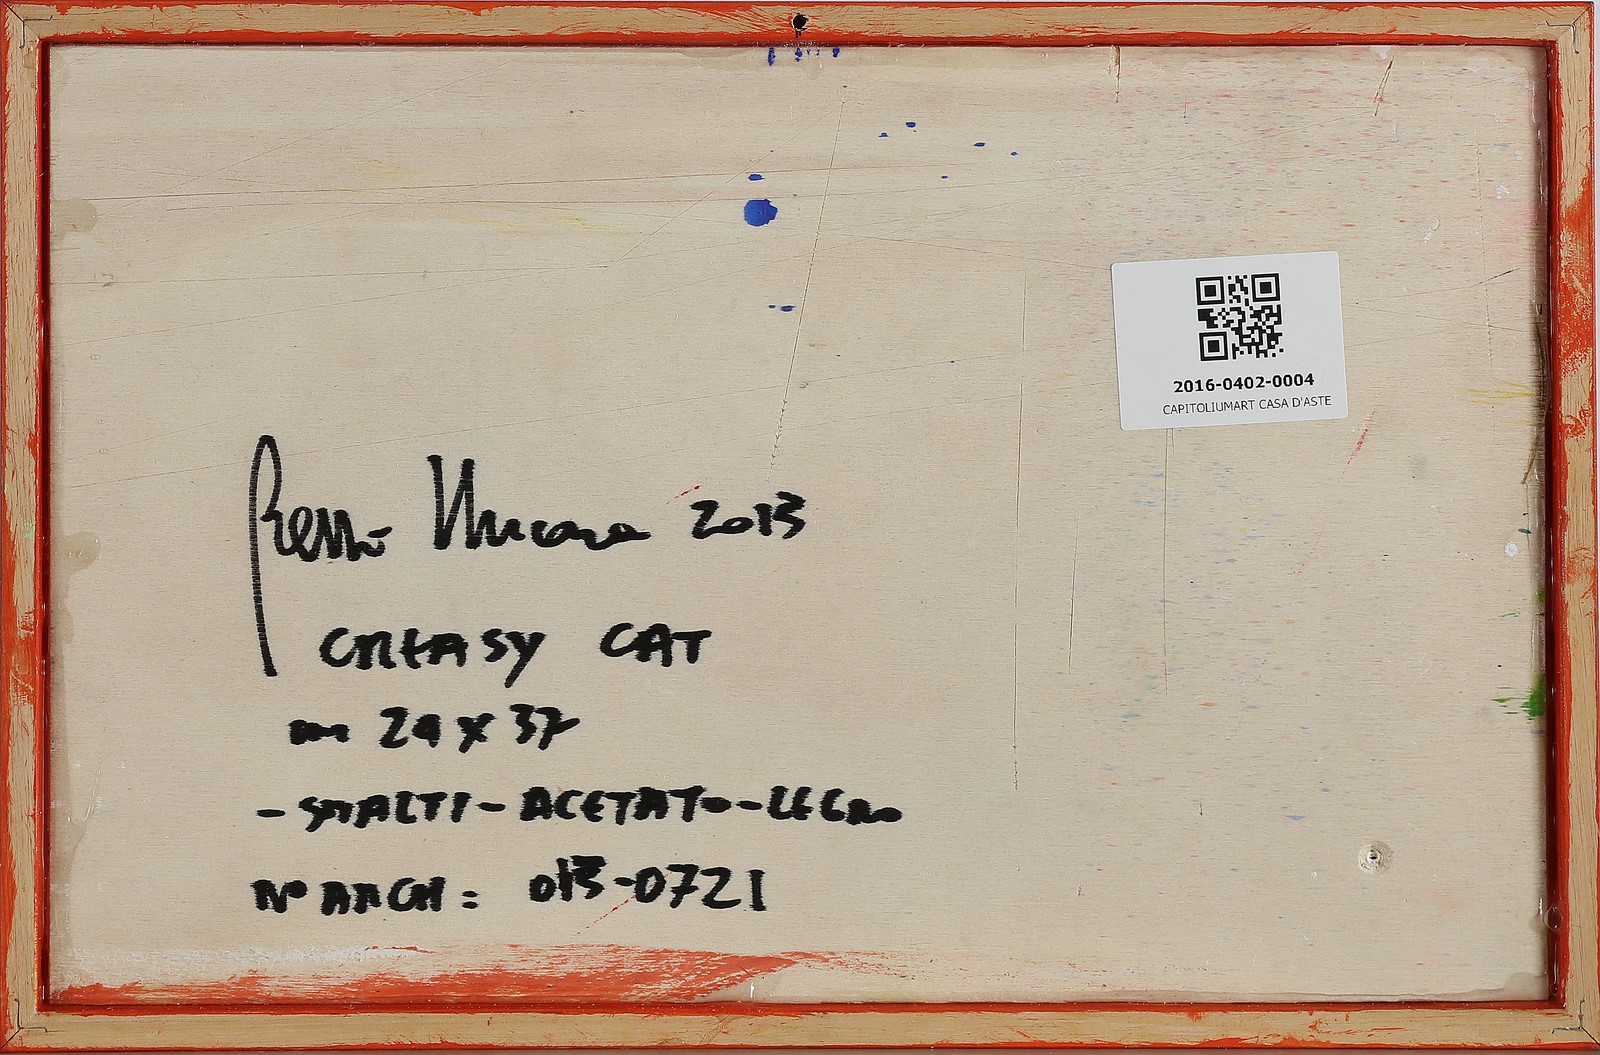 2016-0402-0004
CAPITOLIUMART CASA D'ASTE
Renzo Nucara 2013
GREASY CAT
cm 24 x 37
- SMALTI - ACETATO - LEGNO
N° ARCH: 013-0721